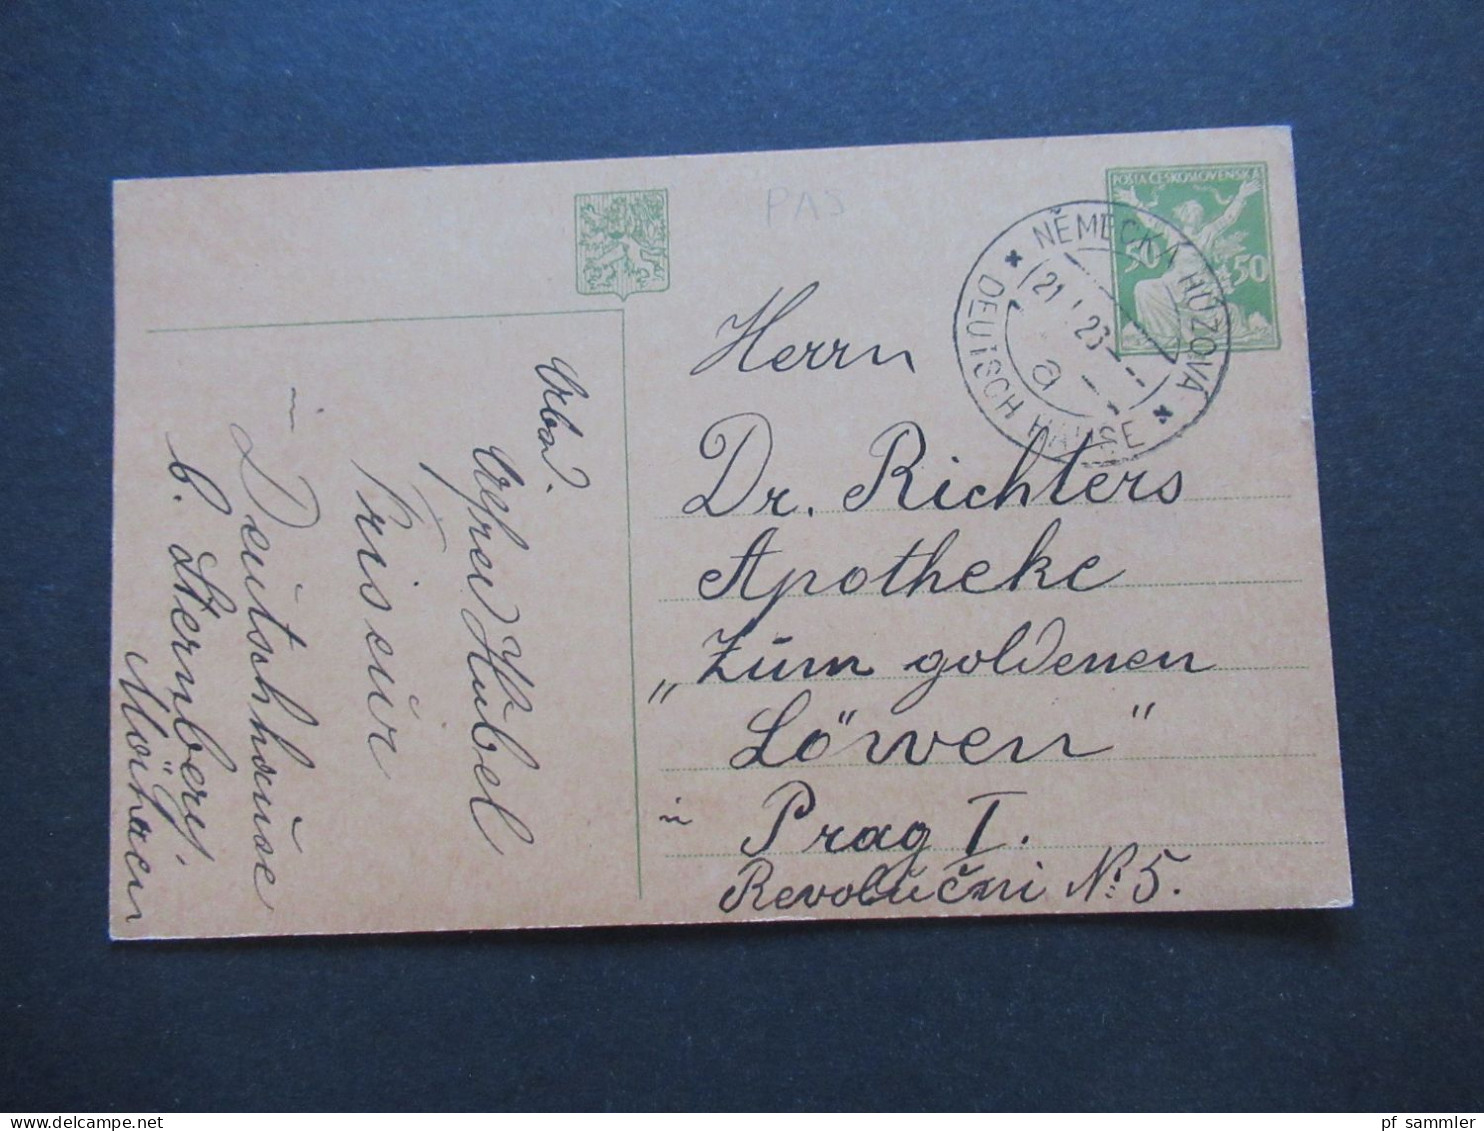 PAS
POŠTA ČESKOSLOVENSKÁ
50 50
NĚMECKÁ HUZOVÁ
21 23
a
DEUTSCH HAUSE
Herrn
Dr. Richters
Apotheke
"Zum goldenen
Löwen"
in Prag I.
Revoluční No. 5.
Absd.
Alfred Hübel
Friseur
in Deutschhause
b. Sternberg.
Mähren
pf_sammler - delcampe.net